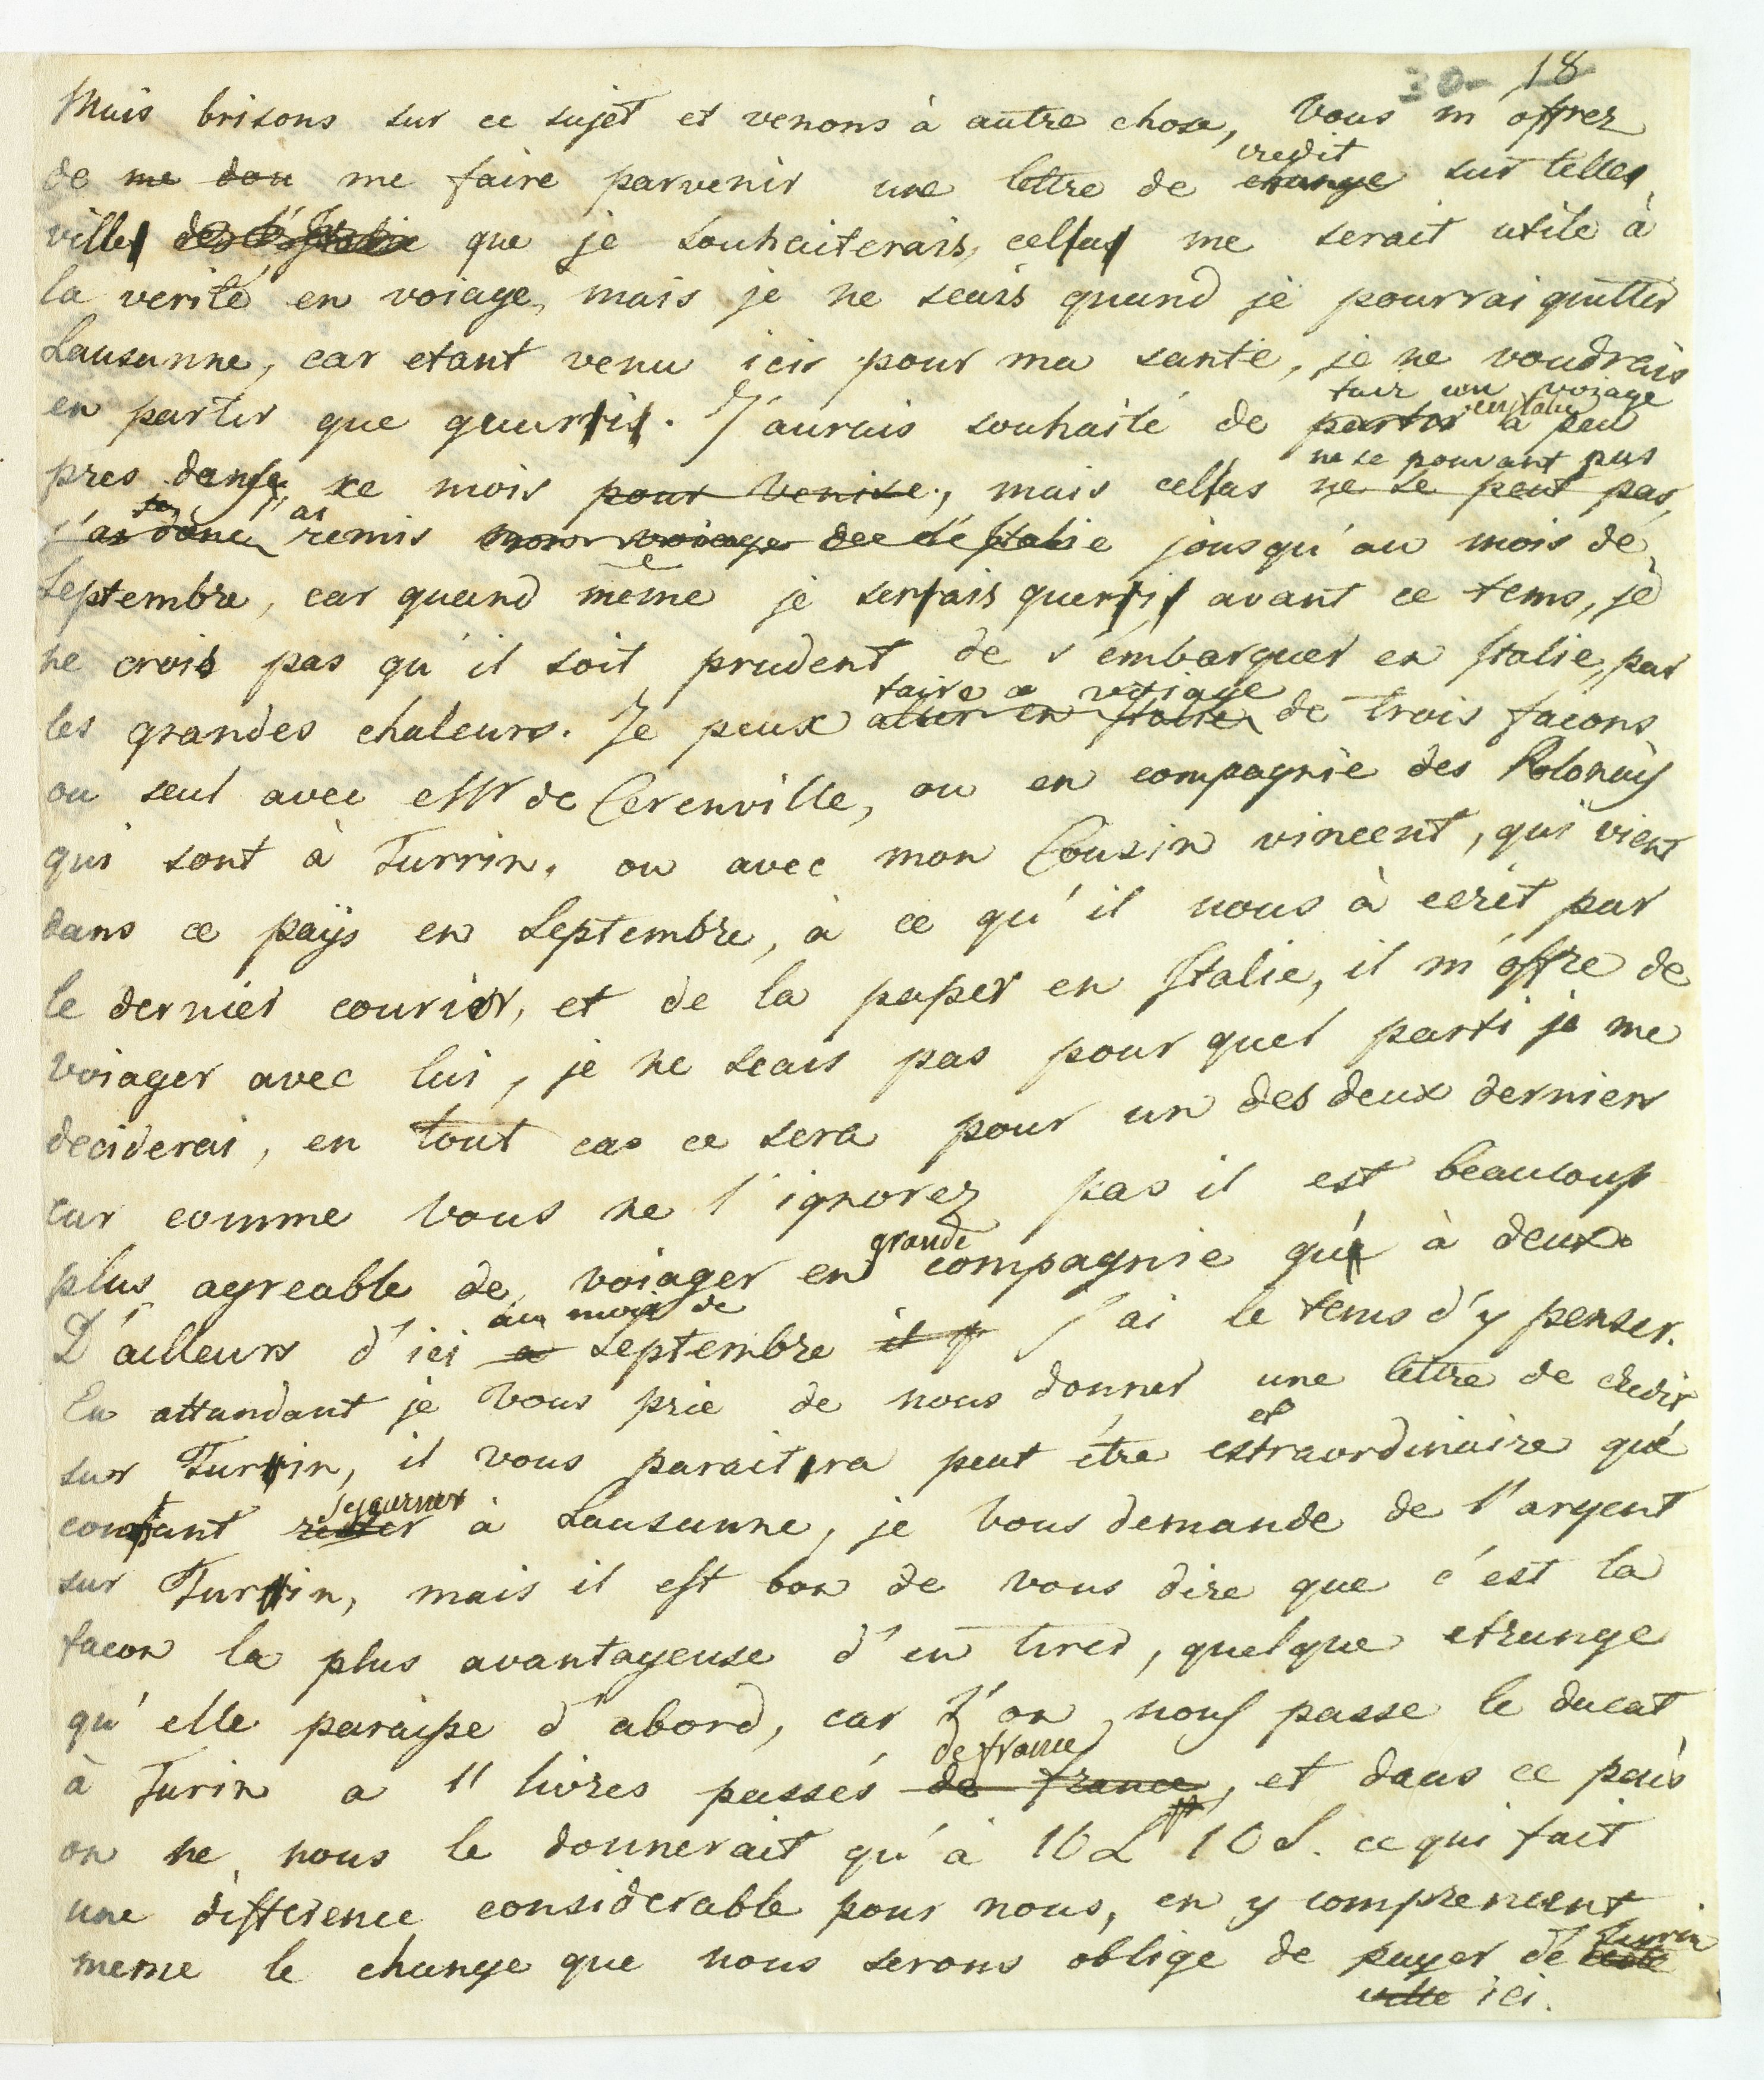 30 18
Mais brisons sur ce sujet et venons à autre chose, Vous m'offrez
credit
de me don me faire parvenir une lettre de change sur telles
villes de l'Italie que je souhaiterais, cella me serait utile à
la verité en voiage, mais je ne scais quand je pourrai quitter
Lausanne, car etant venu ici pour ma santé, je ne voudrais
faire un voiage
en Italie
en partir que gueri. J'aurais souhaité de partir à peu
ne se pouvant pas
pres dans ce mois pour Venise, mais cella ne se peut pas,
je l'ai
j'ai donc remis mon voiage de l'Italie jousqu'au mois de
Septembre, car quand même je serais gueri avant ce tems, je
ne crois pas qu'il soit prudent de s'embarquer en Italie, par
faire ce voiage
les grandes chaleurs. Je peux aller en Italie de trois facons
ou seul avec Mr de Cerenville, ou en compagnie des Polonais
qui sont à Turrin, ou avec mon Cousin vincent, qui vient
dans ce païs en Septembre, à ce qu'il nous à ecrit par
le dernier courier, et de la passer en Italie, il m'offre de
voiager avec lui, je ne scais pas pour quel parti je me
deciderai, en tout cas ce sera pour un des deux derniers
car comme vous ne l'ignorez pas il est beaucoup
grande
plus agreable de voiager en compagnie qu'à à deux.
au mois de
D'ailleurs d'ici a Septembre il y j'ai le tems d'y penser.
En attandant je vous prie de nous donner une lettre de credit
sur Turin, il vous paraitra peut être extraordinaire que
sejourner
contant rester à Lausanne, je vous demande de l'argent
sur Turin, mais il est bon de vous dire que c'est la
facon la plus avantageuse d'en tirer, quelque etrange
qu'elle paraisse d'abord, car l'on nous passe le ducat
de france
à Turin a 11 livres passés de france, et dans ce païs
on ne nous le donnerait qu'à 10 L 10 S. ce qui fait
une difference considerable pour nous, en y comprenant
Turrin
meme le change que nous serons oblige de payer de cette
ville ici.